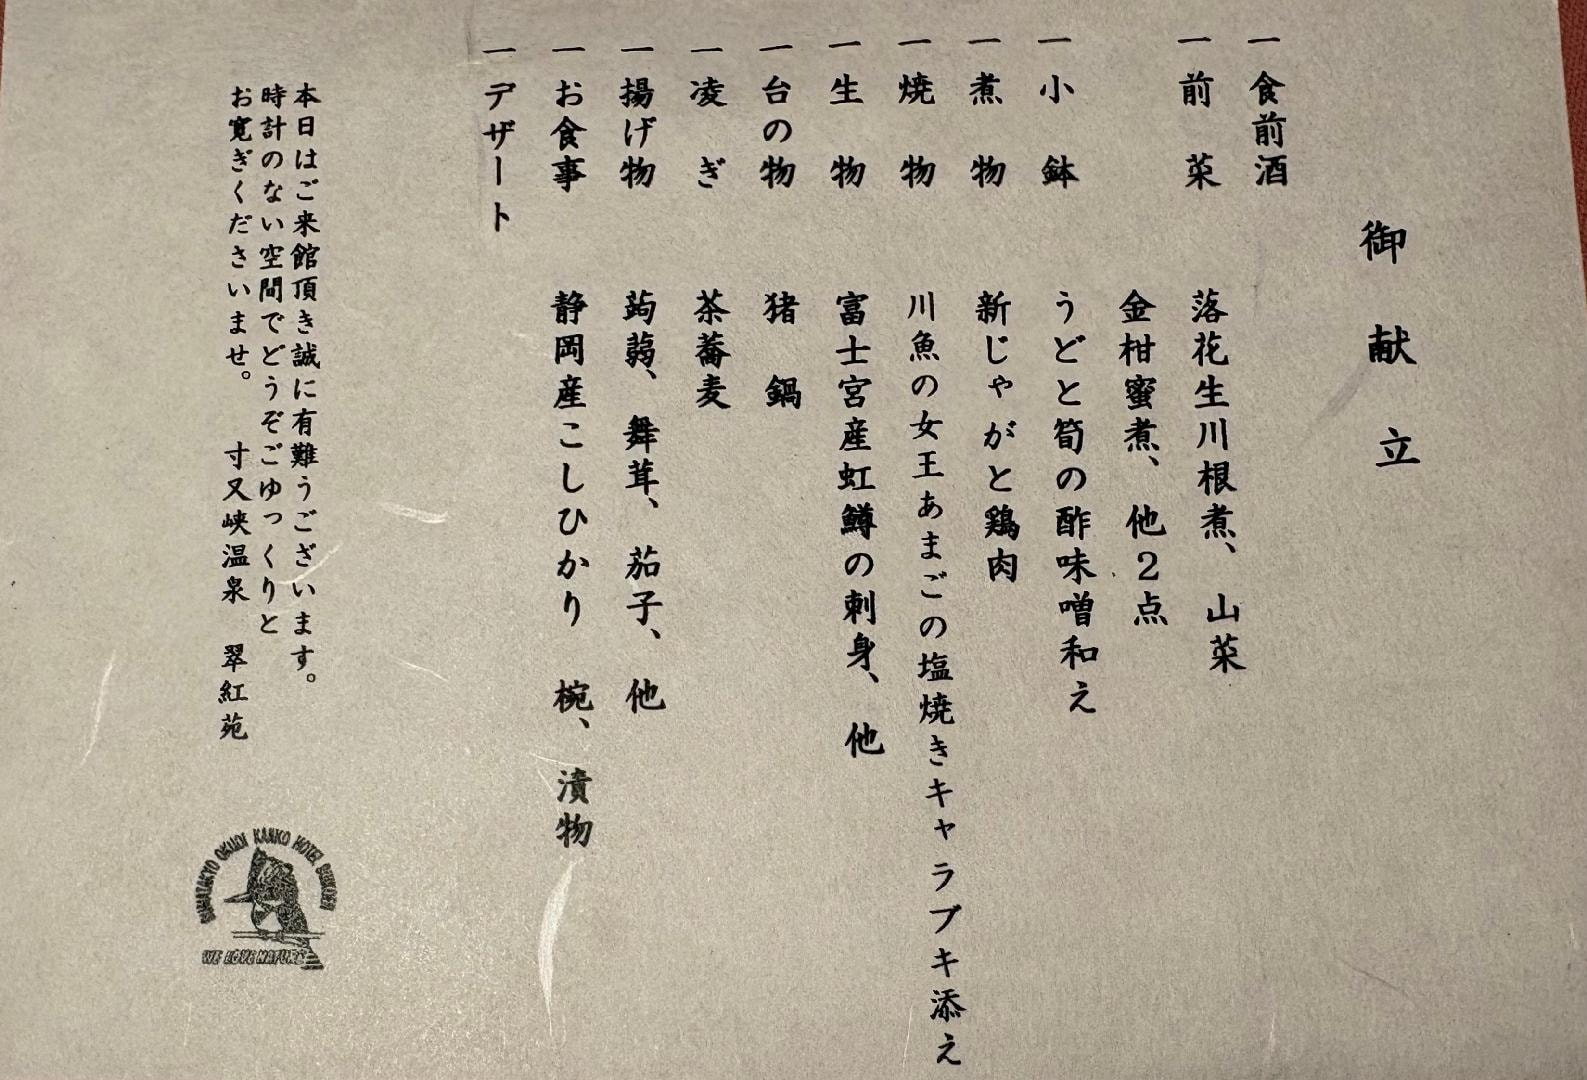 御献立
一 食前酒
一 前菜 落花生川根煮、山菜
金柑蜜煮、他2点
一 小鉢 うどと筍の酢味噌和え
一 煮物 新じゃがと鶏肉
一 焼物 川魚の女王あまごの塩焼きキャラブキ添え
一 生物 富士宮産虹鱒の刺身、他
一 台の物 猪鍋
一 凌ぎ 茶蕎麦
一 揚げ物 蒟蒻、舞茸、茄子、他
一 お食事 静岡産こしひかり 椀、漬物
一 デザート
本日はご来館頂き誠に有難うございます。
時計のない空間でどうぞごゆっくりと
お寛ぎくださいませ。 寸又峡温泉 翠紅苑
OKUOI KANKO HOTEL
WE LOVE NATURE